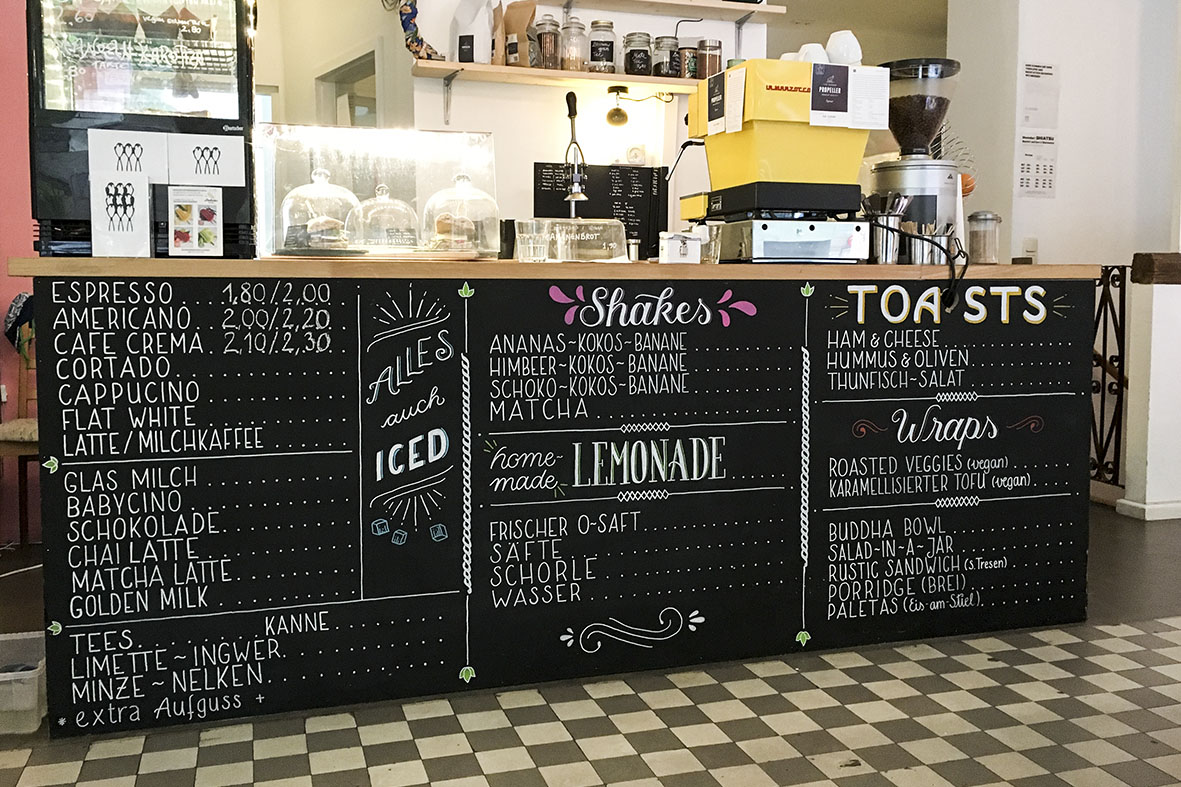 LAMARZOCCO
PROPELLER
BANANENBROT
1,90
2.80
ESPRESSO 1,80/2,00
AMERICANO 2,00/2,20
CAFE CREMA 2,10/2,30
CORTADO
CAPPUCINO
FLAT WHITE
LATTE/MILCHKAFFEE
GLAS MILCH
BABYCINO
SCHOKOLADE
CHAI LATTE
MATCHA LATTE
GOLDEN MILK
TEES KANNE
LIMETTE~INGWER
MINZE~NELKEN
* extra Aufguss +
ALLES
auch
ICED
Shakes
ANANAS~KOKOS~BANANE
HIMBEER~KOKOS~BANANE
SCHOKO~KOKOS~BANANE
MATCHA
home-
made
LEMONADE
FRISCHER O-SAFT
SÄFTE
SCHORLE
WASSER
TOASTS
HAM & CHEESE
HUMMUS & OLIVEN
THUNFISCH-SALAT
Wraps
ROASTED VEGGIES (vegan)
KARAMELLISIERTER TOFU (vegan)
BUDDHA BOWL
SALAD~IN~A~JAR
RUSTIC SANDWICH (s.Tresen)
PORRIDGE (BREI)
PALETAS (Eis-am-Stiel)